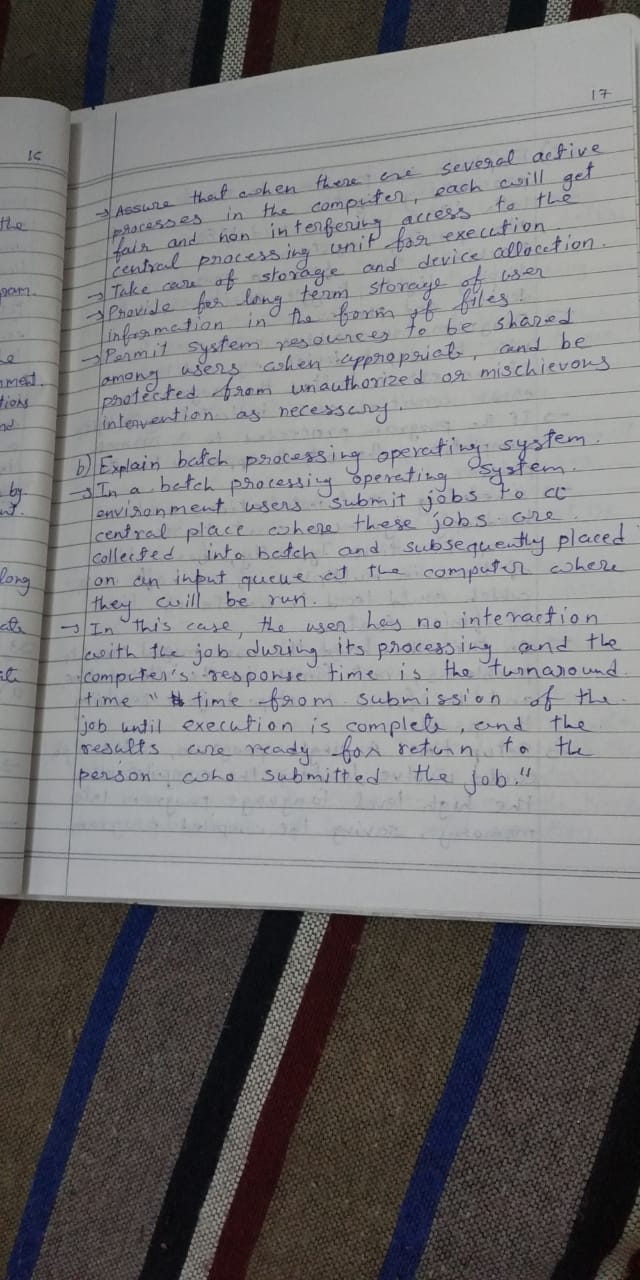 16
the
pam.
nment.
tions
nd
by
long
17
→ Assure that when there are several active
processes in the computer, each will get
fair and non interfering access to the
central processing unit for execution.
→ Take care of storage and device allocation.
→ Provide for long term storage of user
information in the form of files.
→ Permit system resources to be shared
among users when appropriate, and be
protected from unauthorized or mischievous
intervention as necessary.
b) Explain batch processing operating system.
→ In a batch processing operating system.
environment users submit jobs to a
central place where these jobs are
collected into batch and subsequently placed
on an input queue at the computer where
they will be run.
→ In this case, the user has no interaction
with the job during its processing and the
computer's response time is the turnaround
time " time from submission of the
job until execution is complete, and the
results are ready for return to the
person who submitted the job."